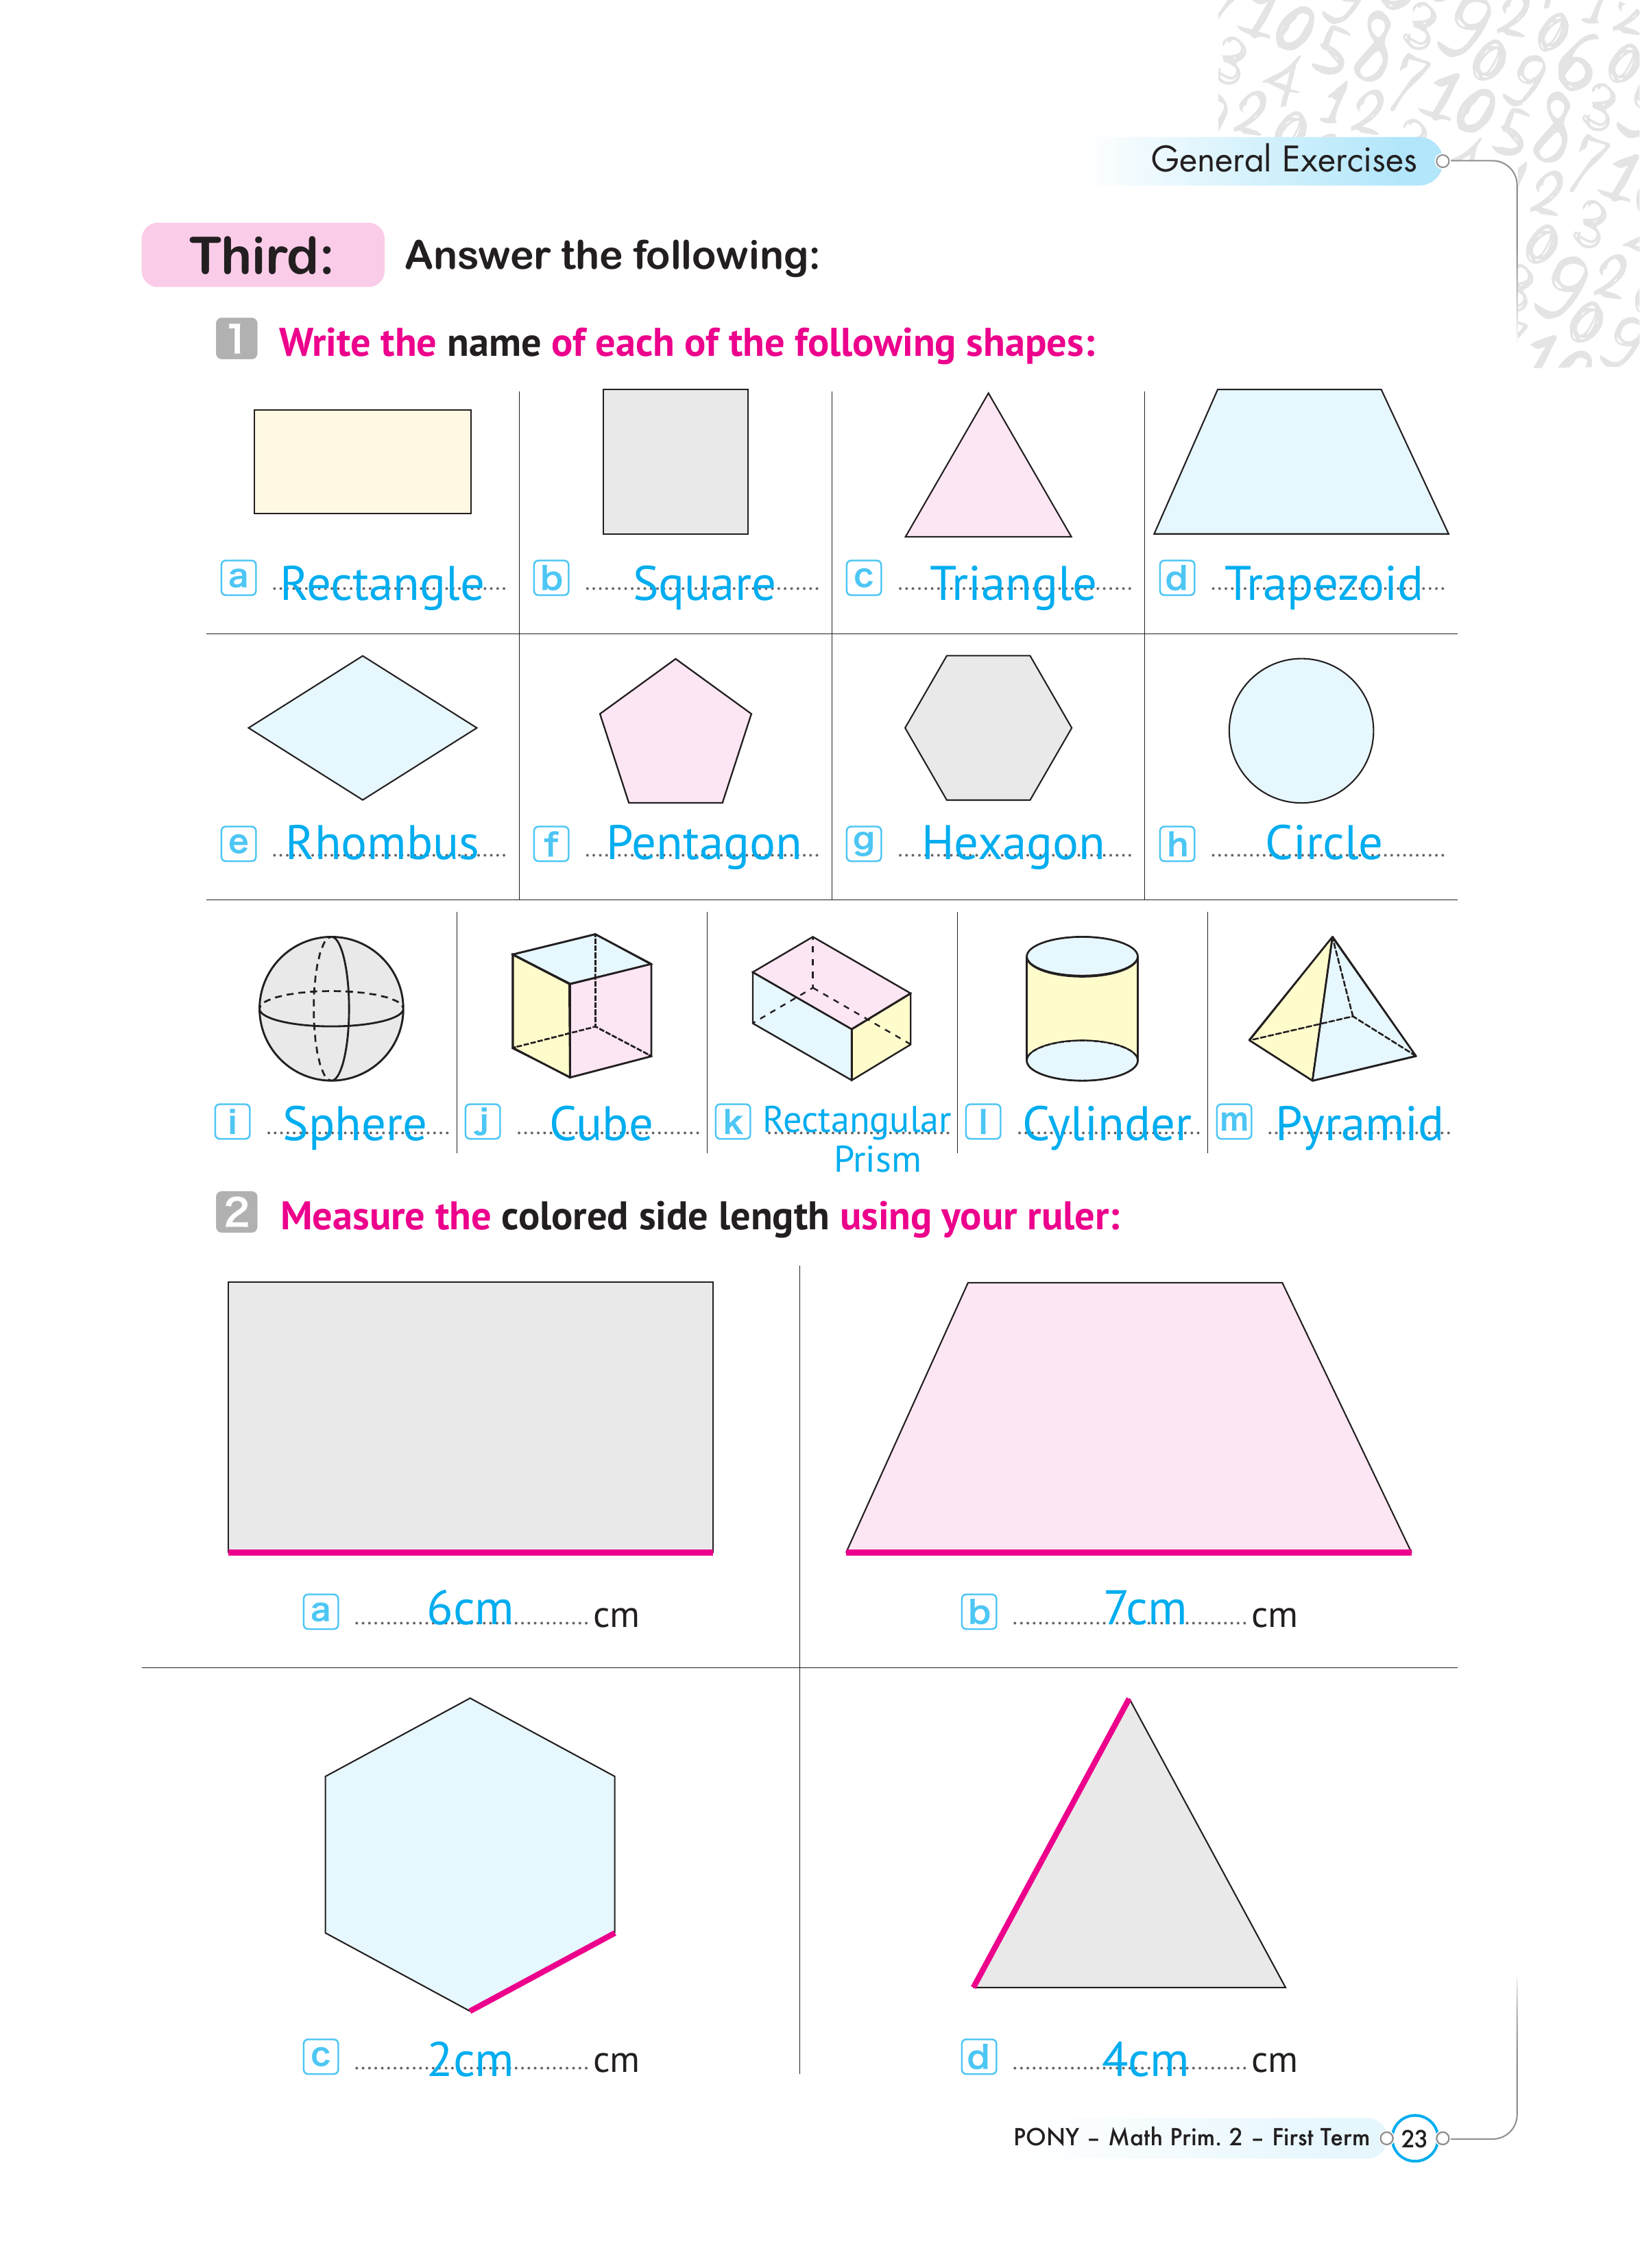 General Exercises
Third: Answer the following:
1 Write the name of each of the following shapes:
a Rectangle b Square c Triangle d Trapezoid
e Rhombus f Pentagon g Hexagon h Circle
i Sphere j Cube k Rectangular l Cylinder m Pyramid
Prism
2 Measure the colored side length using your ruler:
a 6cm cm b 7cm cm
c 2cm cm d 4cm cm
PONY – Math Prim. 2 – First Term 23